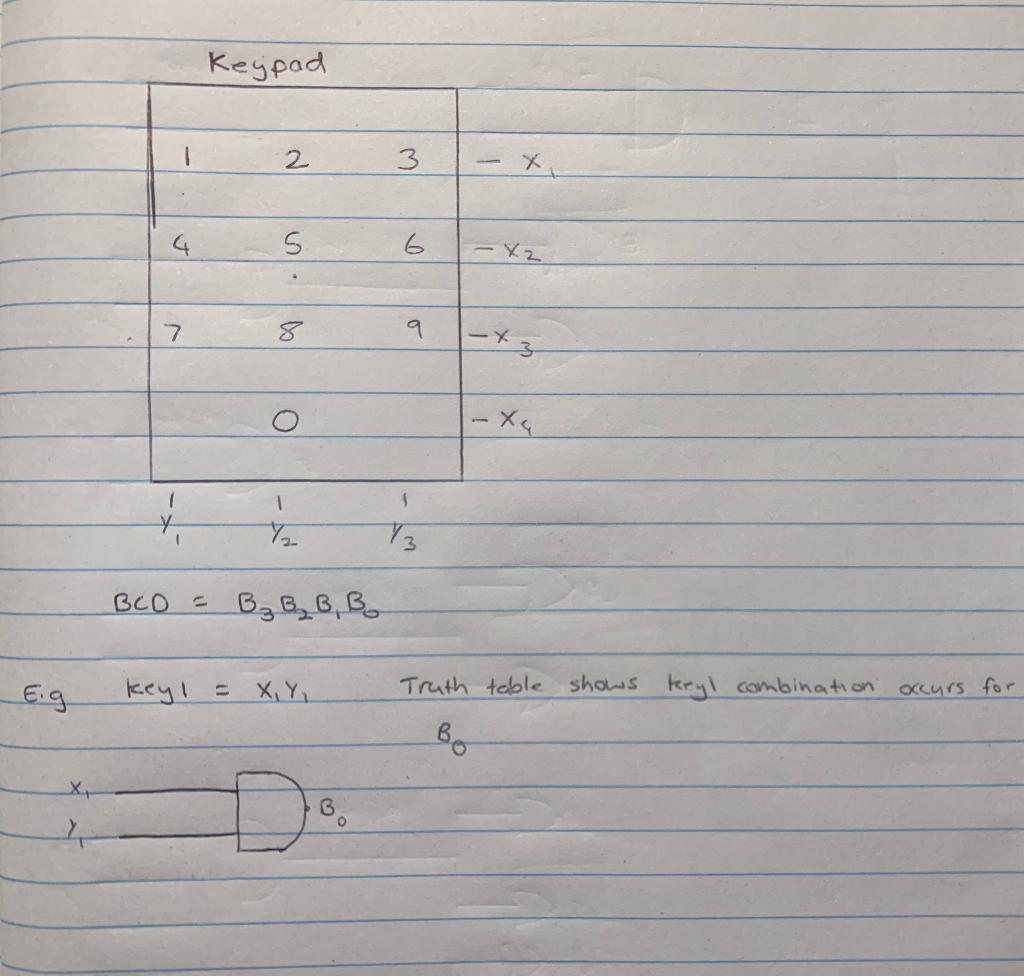 Keypad
1 2 3 - X₁
4 5 6 - X₂
7 8 9 - X₃
0 - X₄
Y₁ Y₂ Y₃
BCD = B₃ B₂ B₁ B₀
E.g key1 = X₁Y₁ Truth table shows key1 combination occurs for
B₀
X₁
Y₁
B₀